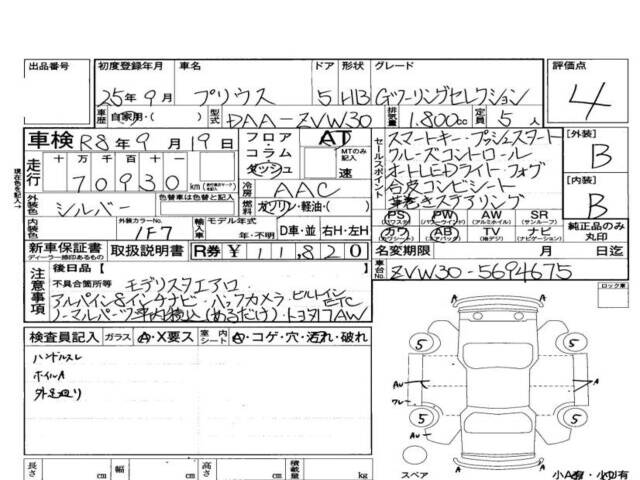 出品番号 初度登録年月 車名 ドア 形状 グレード 評価点
25年9月 プリウス 5 HB Gツーリングセレクション 4
車歴 自家用・( ) 型式 DAA-ZVW30 排気量 1.800cc 定員 5人
車検 R8年9月19日 フロア・コラム・ダッシュ AT MTのみ記入 速
走行 十万千百十 70930 km
冷房 AAC
外装色 シルバー 色替車は色替と記入 燃料 ガソリン・軽油・( )
内装色 外装カラーNo. 1F7 輸入車 モデル年式 年・不明 D車・並 右H・左H
セールスポイント
スマートキー・プッシュスタート
クルーズコントロール
オートLEDライト・フォグ
合皮コンビシート
革巻きステアリング
PS (パワステ) PW (パワーウインド) AW (アルミホイル) SR (サンルーフ)
カワ (カワシート) AB (エアバッグ) TV (地デジ) ナビ (ナビゲーション)
[外装] B
[内装] B
純正品のみ丸印
新車保証書 ディーラー捺印あるもの 取扱説明書 R券 ¥11,820 名変期限 月 日迄
車台No. ZVW30-5694675
注意事項 後日品【 】
不具合箇所等 モデリスタエアロ
アルパイン8インチナビ・バックカメラ・ビルトインETC
ノーマルパーツ車内積込(あるだけ)・トヨタ17AW
ロック車
検査員記入 ガラス A・X要ス 室内シート A・コゲ・穴・汚れ・破れ
ハンドルスレ
ホイルA
外足廻り
5 5
AW A
5 5
AW
スペア 小A有・小U有
長さ cm 幅 cm 高さ cm 積載量 kg